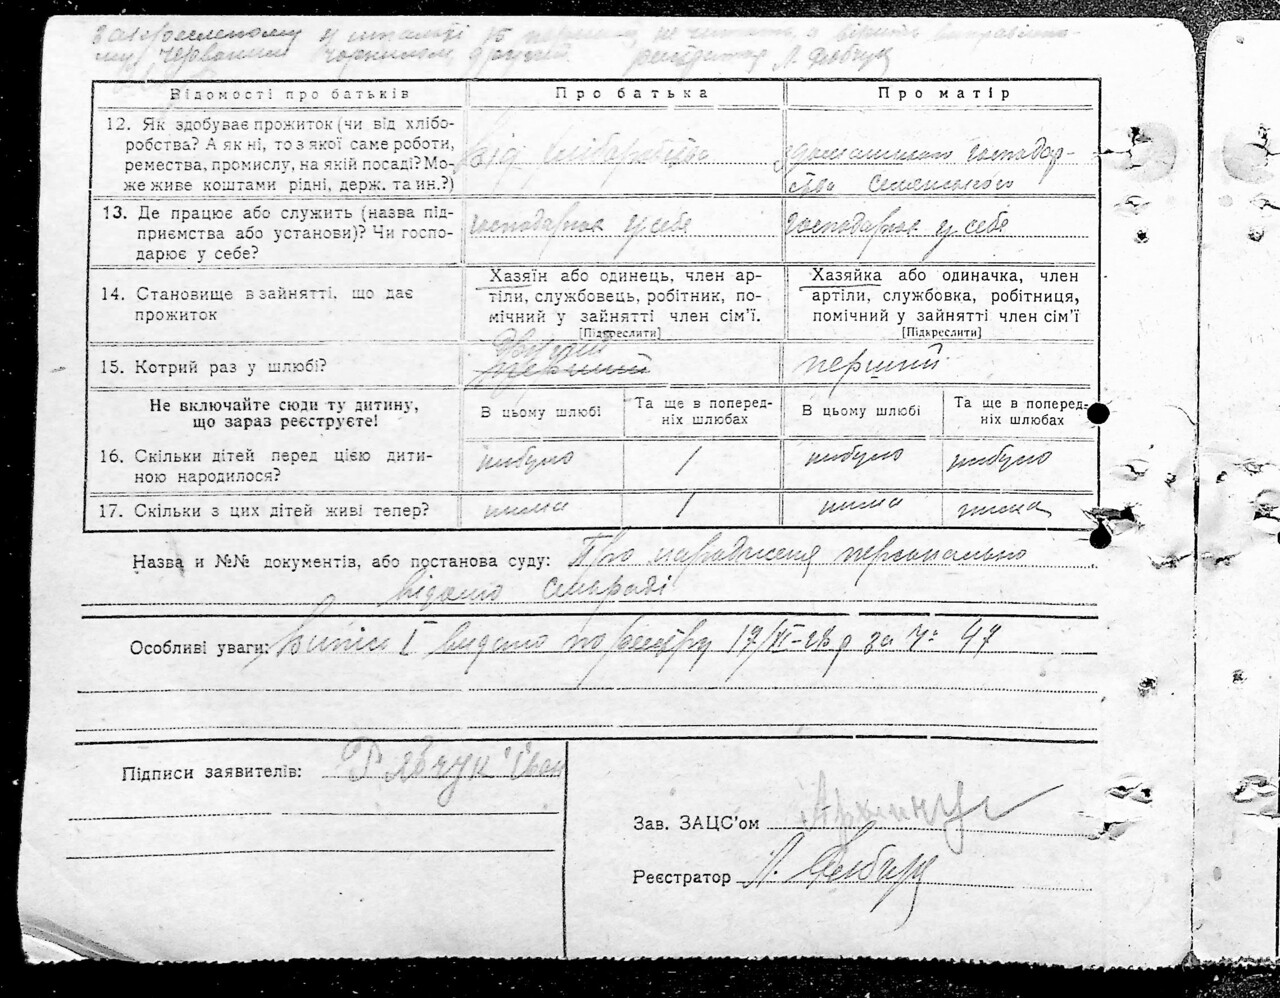 закресленому у питанні 15 перший, не читать, а вірить виправлено-
му червоним чорнилом, другий. реєстратор Л.
Відомості про батьків
Про батька
Про матір
12. Як здобуває прожиток (чи від хлібо-
робства? А як ні, то з якої саме роботи,
ремества, промислу, на якій посаді? Мо-
же живе коштами рідні, держ. та ин.?)
Від хліборобства
з домашнього господар-
ства селянського
13. Де працює або служить (назва під-
приємства або установи)? Чи госпо-
дарює у себе?
господарює у себе
господарює у себе
14. Становище в зайнятті, що дає
прожиток
Хазяїн або одинець, член ар-
тіли, службовець, робітник, по-
мічний у зайнятті член сім'ї.
[Підкреслити]
Хазяйка або одиначка, член
артіли, службовка, робітниця,
помічний у зайнятті член сім'ї
[Підкреслити]
15. Котрий раз у шлюбі?
другий
перший
перший
Не включайте сюди ту дитину,
що зараз реєструєте!
В цьому шлюбі
Та ще в поперед-
ніх шлюбах
В цьому шлюбі
Та ще в поперед-
ніх шлюбах
16. Скільки дітей перед цією дити-
ною народилося?
небуло
1
небуло
небуло
17. Скільки з цих дітей живі тепер?
нема
1
нема
нема
Назва и №№ документів, або постанова суду: Про народження персонально
відомо сельраді
Особливі уваги: Витяг I видано по реєстру 17/VI-28 р за Ч: 47
Підписи заявителів:
Зав. ЗАЦС'ом
Реєстратор Л.